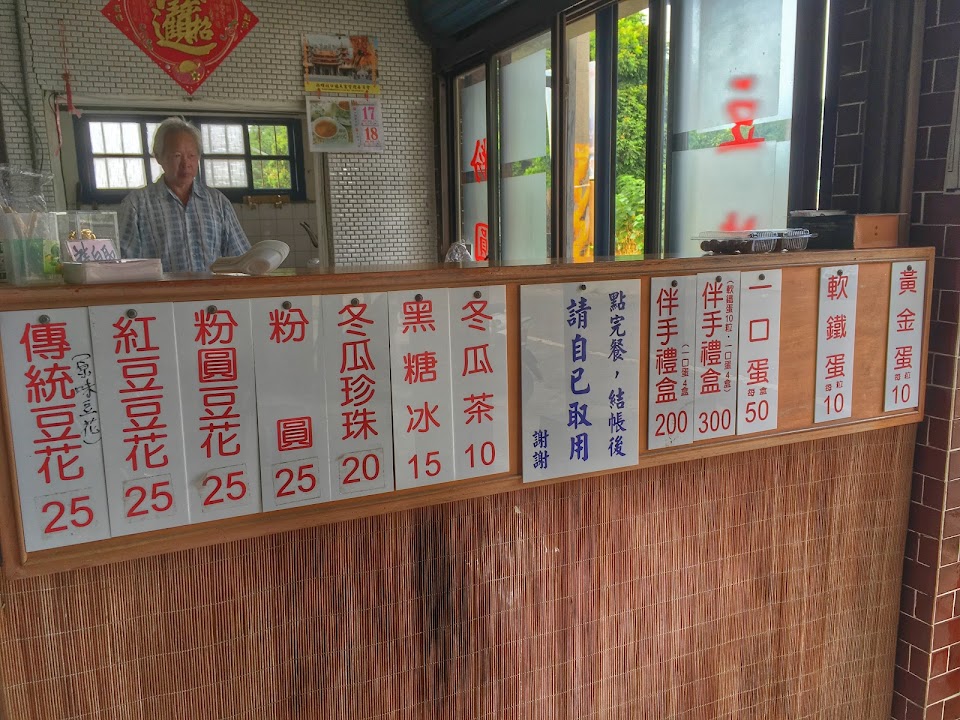 招財進寶
17
18
份
圓
豆
傳統豆花
(原味豆花)
25
紅豆豆花
25
粉圓豆花
25
粉圓
25
冬瓜珍珠
20
黑糖冰
15
冬瓜茶
10
點完餐，結帳後
請自已取用
謝謝
伴手禮盒
(一口蛋4盒)
200
伴手禮盒
(軟鐵蛋10粒·一口蛋4盒)
300
一口蛋
每盒
50
軟鐵蛋
每粒
10
黃金蛋
每粒
10